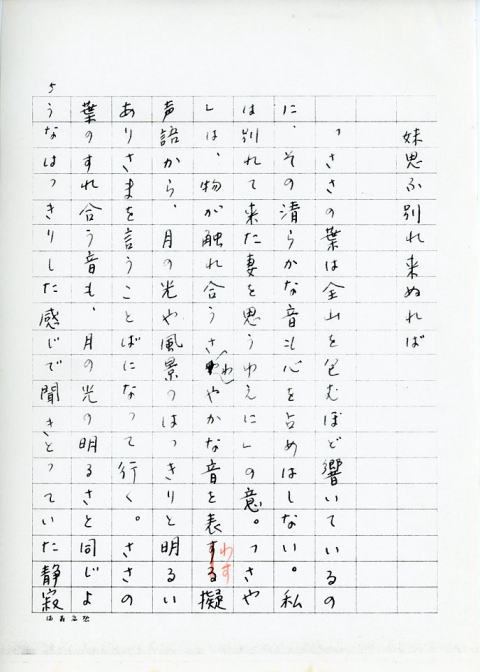 5
妹思ふ別れ来ぬれば
「ささの葉は全山を包むほど響いているの
に、その清らかな音も心を占めはしない。私
は別れて来た妻を思うゆえに」の意。「さや
」は、物が触れ合うさわやかな音を表わす擬
声語から、月の光や風景のはっきりと明るい
ありさまを言うことばになって行く。ささの
葉のすれ合う音も、月の光の明るさと同じよ
うなはっきりした感じで聞きとっていた静寂